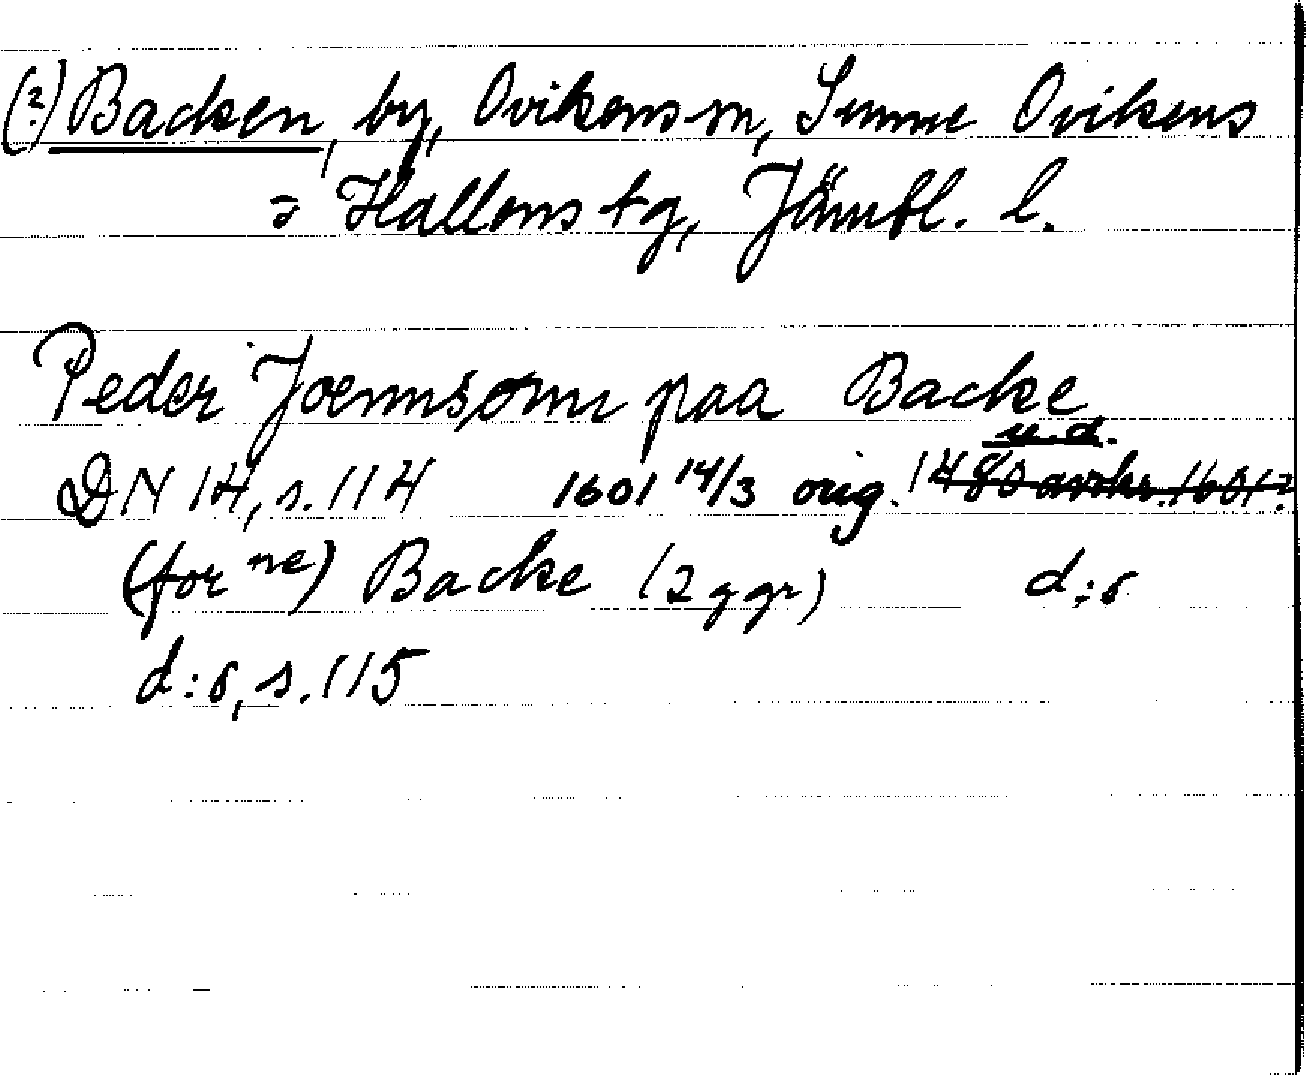 (?) Backen, by, Ovikens sn, Sunne Ovikens
= Hallens tg, Jämtl. l.
Peder Joennsønn paa Backe
u.d.
DN 14, s. 114 1601 14/3 orig. 1480 avskr. 1601?
(for ne) Backe (2 ggr) d:o
d:o, s. 115